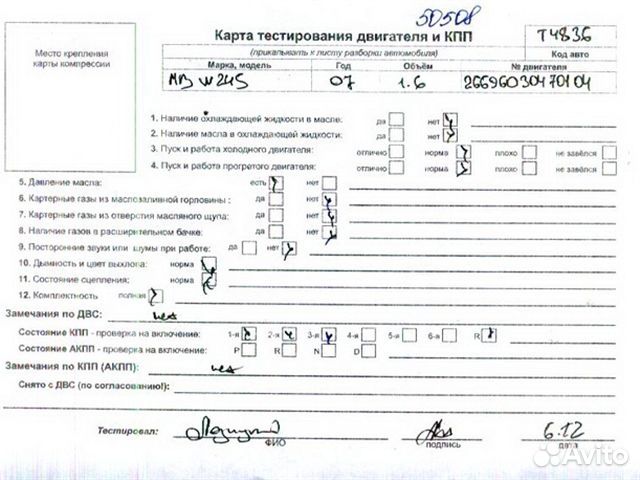 50508
Карта тестирования двигателя и КПП
T4836
Место крепления
карты компрессии
(прикалывать к листу разборки автомобиля)
Код авто
Марка, модель Год Объём № двигателя
МВ W245 07 1.6 26696030470104
1. Наличие охлаждающей жидкости в масле: да нет
2. Наличие масла в охлаждающей жидкости: да нет
3. Пуск и работа холодного двигателя: отлично норма плохо не завёлся
4. Пуск и работа прогретого двигателя: отлично норма плохо не завёлся
5. Давление масла: есть нет
6. Картерные газы из маслозаливной горловины : да нет
7. Картерные газы из отверстия масляного щупа: да нет
8. Наличие газов в расширительном бачке: да нет
9. Посторонние звуки или шумы при работе: да нет
10. Дымность и цвет выхлопа: норма
11. Состояние сцепления: норма
12. Комплектность полная
Замечания по ДВС: нет
Состояние КПП - проверка на включение: 1-я 2-я 3-я 4-я 5-я 6-я R
Состояние АКПП - проверка на включение: P R N D
Замечания по КПП (АКПП): нет
Снято с ДВС (по согласованию!):
Тестировал: 6.12
ФИО подпись дата
Avito